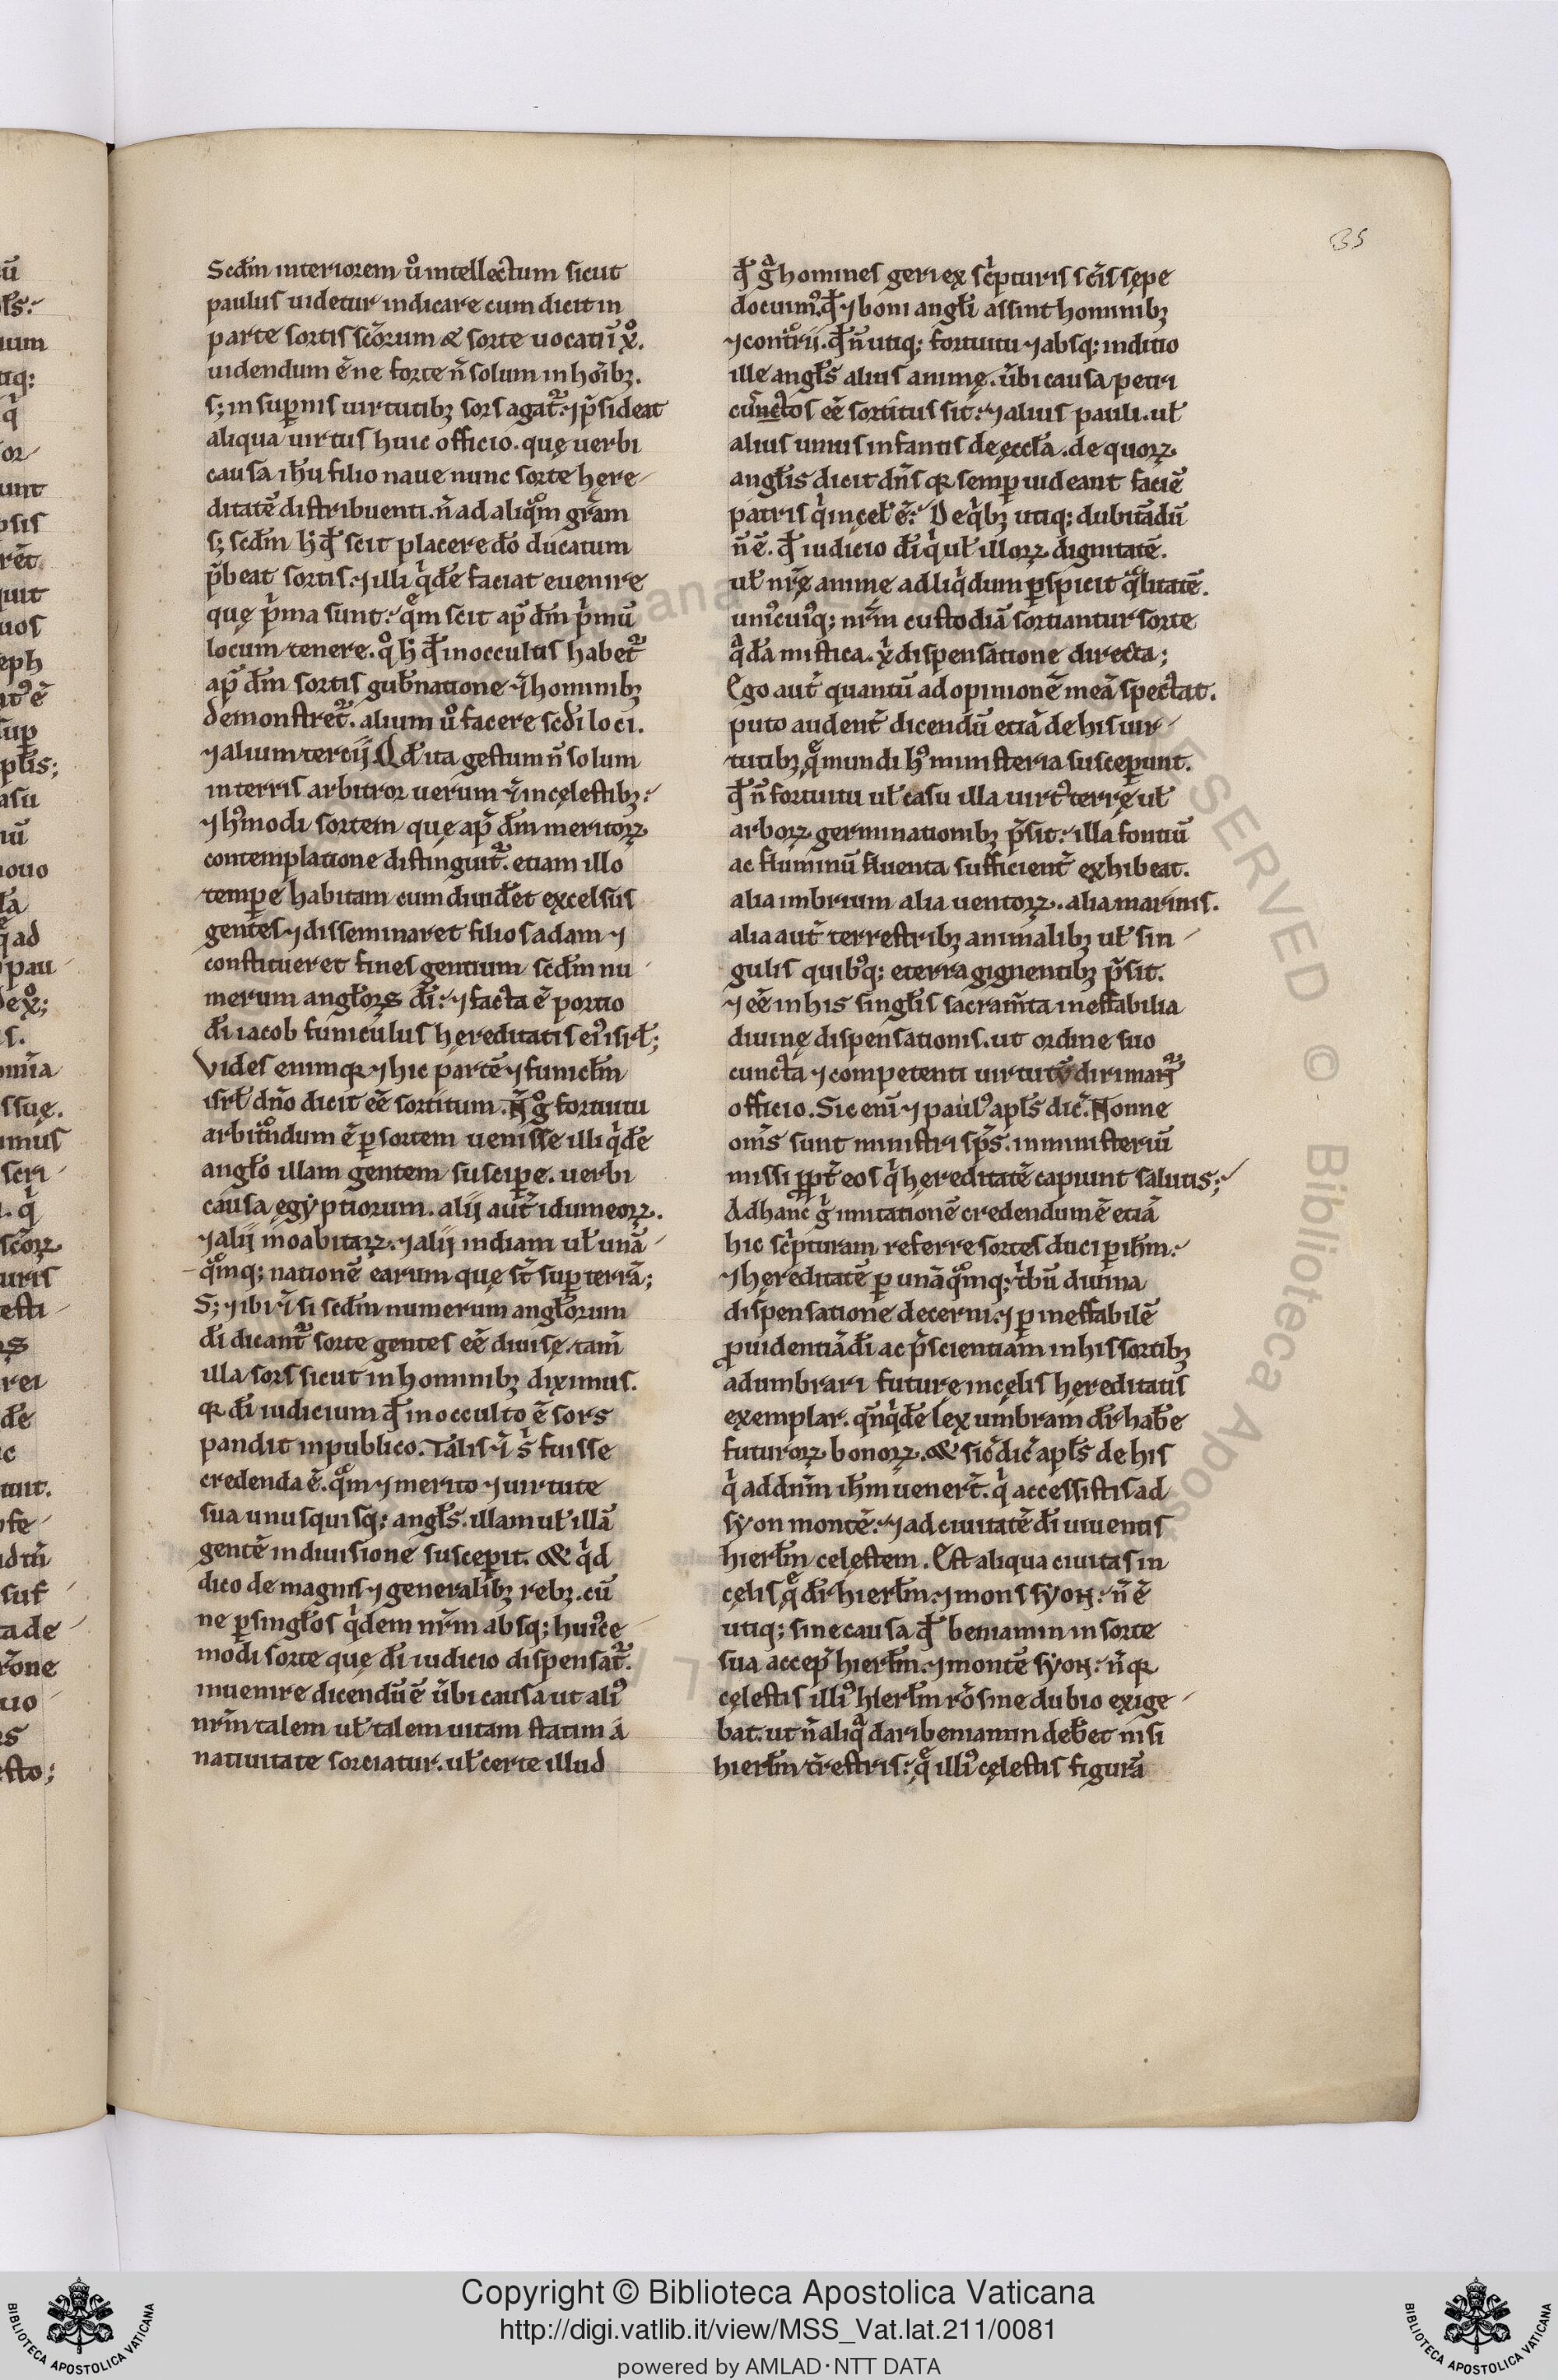 35
Scdm interiorem ů intellectum sicut
paulus uidetur indicare cum dicit in
parte sortis scõrum & sorte uocati ĩ xp̊.
uidendum ẽ ne forte ñ solum in hoĩbȝ.
sȝ in supernis uirtutibȝ sors agat᷑. ⁊ p̃sideat
aliqua uirtus huic officio. quę uerbi
causa ihu filio naue nunc sorte herę
ditatẽ distribuenti. ñ ad aliqͦm gr̃am
sȝ scdm h̵ qđ scit placere dõ ducatum
p̃beat sortis. ⁊ illi qͥdẽ faciat euenire
quę pͥma sunt. qͤm scit ap̃ dm̃ pͥmũ
locum tenere. qͦ h̵ qđ in occultis habet᷑
ap̃ dm̃ sortis gub̃natione ⁊ ĩ hominibȝ
demonstret᷑. alium ů facere scđi loci.
⁊ alium tercij. Qđ ita gestum ñ solum
in terris arbitror uerum ⁊ in cęlestibȝ.
⁊ hꝰmodi sortem quę ap̃ dm̃ meritoꝝ
contemplatione distinguit᷑. etiam illo
tempe habitam cum diuid̃et excelsus
gentes ⁊ disseminaret filios adam ⁊
constitueret fines gentium scdm nu
merum angłoꝝ dĩ. ⁊ facta ẽ portio
dĩ iacob funiculus hereditatis eiꝰ isrł;
Vides enim qꝛ ⁊ hic partẽ ⁊ funicłm
isrł dño dicit eẽ sortitum. Ñ gͦ fortuitu
arbitͬndum ẽ ꝑ sortem uenisse illi qͥdẽ
angło illam gentem suscipe. uerbi
causa egyptiorum. alij aut̃ idumeoꝝ.
⁊ alij moabitaꝝ. ⁊ alij indiam uł unã
qͣmqꝫ nationẽ earum que st̃ super terrã;
S; ⁊ ibi ⁊ si scdm numerum angłorum
dĩ dicant᷑ sorte gentes eẽ diuisę. tam̃
illa sors sicut in hominibȝ diximus.
qꝛ dĩ iudicium qđ in occulto ẽ sors
pandit in publico. Talis ⁊ ĩ s̃ fuisse
credenda ẽ. qͦm ⁊ merito ⁊ uirtute
sua unusquisqꝫ angłs. illam uł illã
gentẽ in diuisione susceperit. & qͥd
dico de magnis ⁊ generalibȝ rebȝ. cũ
ne ꝑ singłos qͥdem nr̃m absqꝫ huiꝰce
modi sorte quę dĩ iudicio dispensat᷑.
inuenire dicendũ ẽ ũbi causa ut aliꝰ
nr̃m talem uł talem uitam statim a
natiuitate sorciatur. uł certe illud
qđ gͣ homines geri ex scͥpturis scĩs sępe
docuimꝰ. qđ ⁊ boni angłi assint hominibȝ
⁊ contͬrij. qđ ñ utiqꝫ fortuitu ⁊ absqꝫ inditio
ille angłs alius animę. ũbi causa petri
cunctos eẽ sortitus sit. ⁊ alius pauli. uł
alius unius infantis de eccła. de quoꝝ
angłis dicit dñs qꝛ semper uideant faciẽ
patris qͥ in cęł ẽ. De qͥbȝ utiqꝫ dubitãdũ
ñ ẽ. qđ iudicio dĩ qͥ uł illoꝝ dignitatẽ.
uł nr̃ę animę ad liqͥdum ꝑspicit qͣlitatẽ.
uniꝰcuiꝰqꝫ nr̃m custodiã sortiantur sorte
qͣdã mistica. xp̃i dispensatione directa;
Ego aut̃ quantũ ad opinionẽ meã spectat.
puto audent̃ dicendũ etiã de his uir
tutibȝ. qͤ mundi hꝰ ministeria susceperunt.
qđ ñ fortuitu uł casu illa uirtꝰ terrę uł
arboꝝ germinationibȝ p̃sit. illa fontiũ
ac fluminũ fluenta sufficient̃ exhibeat.
alia imbrium alia uentoꝝ. alia marinis.
alia aut̃ terrestribȝ animalibȝ uł sin
gulis quibꝰqꝫ e terra gignentibȝ p̃sit.
⁊ eẽ in his singłis sacram̃ta ineffabilia
diuinę dispensationis. ut ordine suo
cuncta ⁊ competenti uirtutũ dirimant᷑
officio. Sic enĩ ⁊ paulꝰ apłs dic̃. Nonne
om̃s sunt ministri sp̃s. in ministeriũ
missi ꝓpt̃ eos qͥ hereditatẽ capiunt salutis;
Ad hanc gͦ imitationẽ credendum ẽ etiã
hic scͥpturam referre sortes duci ꝑ ihm̃.
⁊ hereditatẽ ꝑ unãqͣmqꝫ tͥbũ diuina
dispensatione decerni. ⁊ ꝑ ineffabilẽ
ꝓuidentiã dĩ ac p̃scientiam in his sortibȝ
adumbrari futurę in cęlis hereditatis
exemplar. qñqͥdẽ lex umbram dr̃ habẽ
futuroꝝ bonoꝝ. & sic dic̃ apłs de his
qͥ ad dnm̃ ihm̃ uener̃t. qͥ accessistis ad
syon montẽ. ⁊ ad ciuitatẽ dĩ uiuentis
hierłm celestem. Est aliqua ciuitas in
cęlis qͤ dr̃ hierłm. ⁊ mons syon. ñ ẽ
utiqꝫ sine causa qđ beniamin in sorte
sua accep̃ hierłm. ⁊ montẽ syon. nͣ qꝛ
cęlestis illiꝰ hierłm rõ sine dubio exige
bat. ut ñ aliqͣ dari beniamin deb̃et nisi
hierłm t̃restris. qͤ illiꝰ cęlestis figurã
Copyright © Biblioteca Apostolica Vaticana
http://digi.vatlib.it/view/MSS_Vat.lat.211/0081
powered by AMLAD·NTT DATA